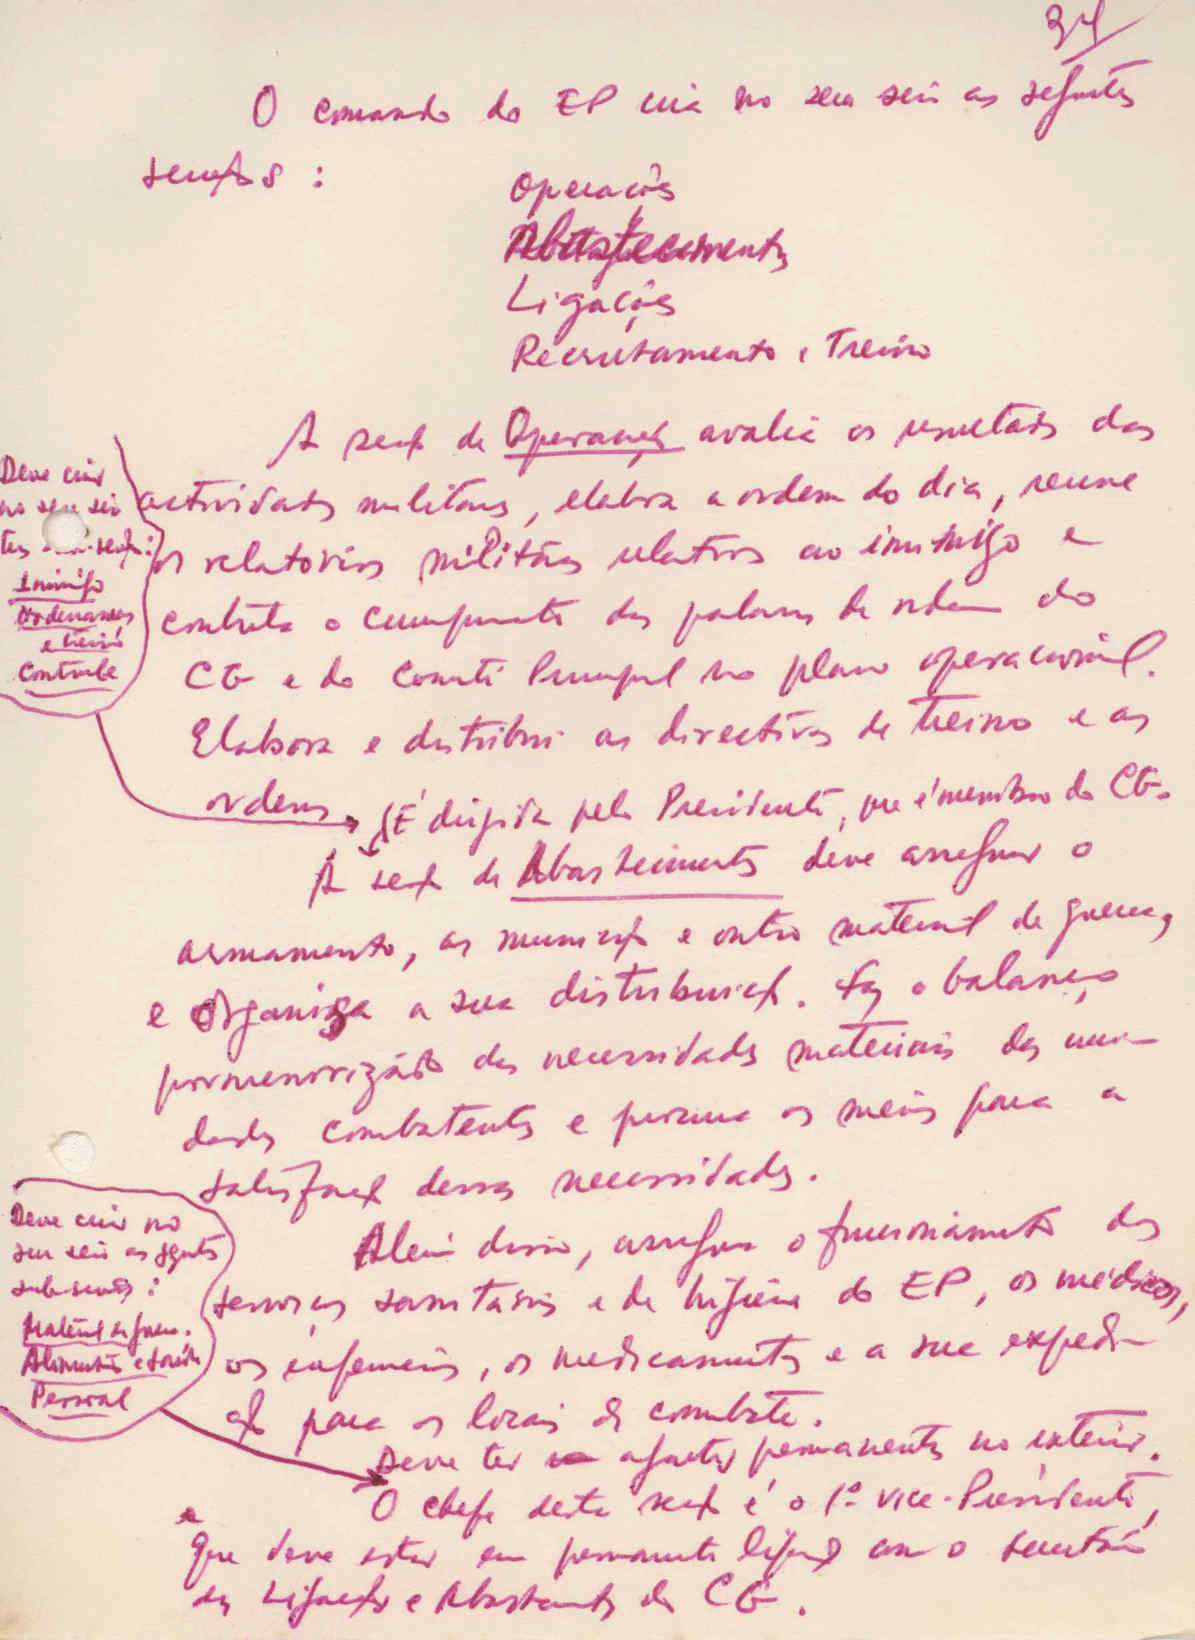 34
O comando do EP cria no seu seio as seguintes
secções :
Operações
Abastecimentos
Ligações
Recrutamento e Treino
A secção de Operações avalia os resultados das
actividades militares, elabora a ordem do dia, reune
os relatórios militares relativos ao inimigo e
controla o cumprimento das palavras de ordem do
CG e do Comité Principal no plano operacional.
Elabora e distribui as directivas de treino e as
ordens.
Deve criar
no seu seio
três sub-secções:
Inimigo
Ordenanças
e treino
Controle
(É dirigida pelo Presidente, que é membro do CG.
A secção de Abastecimentos deve assegurar o
armamento, as munições e outro material de guerra,
e organiza a sua distribuição. Faz o balanço
pormenorizado das necessidades materiais das uni-
dades combatentes e procura os meios para a
satisfação dessas necessidades.
Além disso, assegura o funcionamento dos
serviços sanitários e de higiene do EP, os médicos,
os enfermeiros, os medicamentos e a sua expedi-
ção para os locais de combate.
Deve criar no
seu seio as sgtes
sub-secções :
Material de guerra.
Alimentação e Saúde
Pessoal
Deve ter agentes permanentes no exterior.
O chefe desta secção é o 1º vice-Presidente,
que deve estar em permanente ligação com o secretário
das Ligações e Abastecimentos do CG.